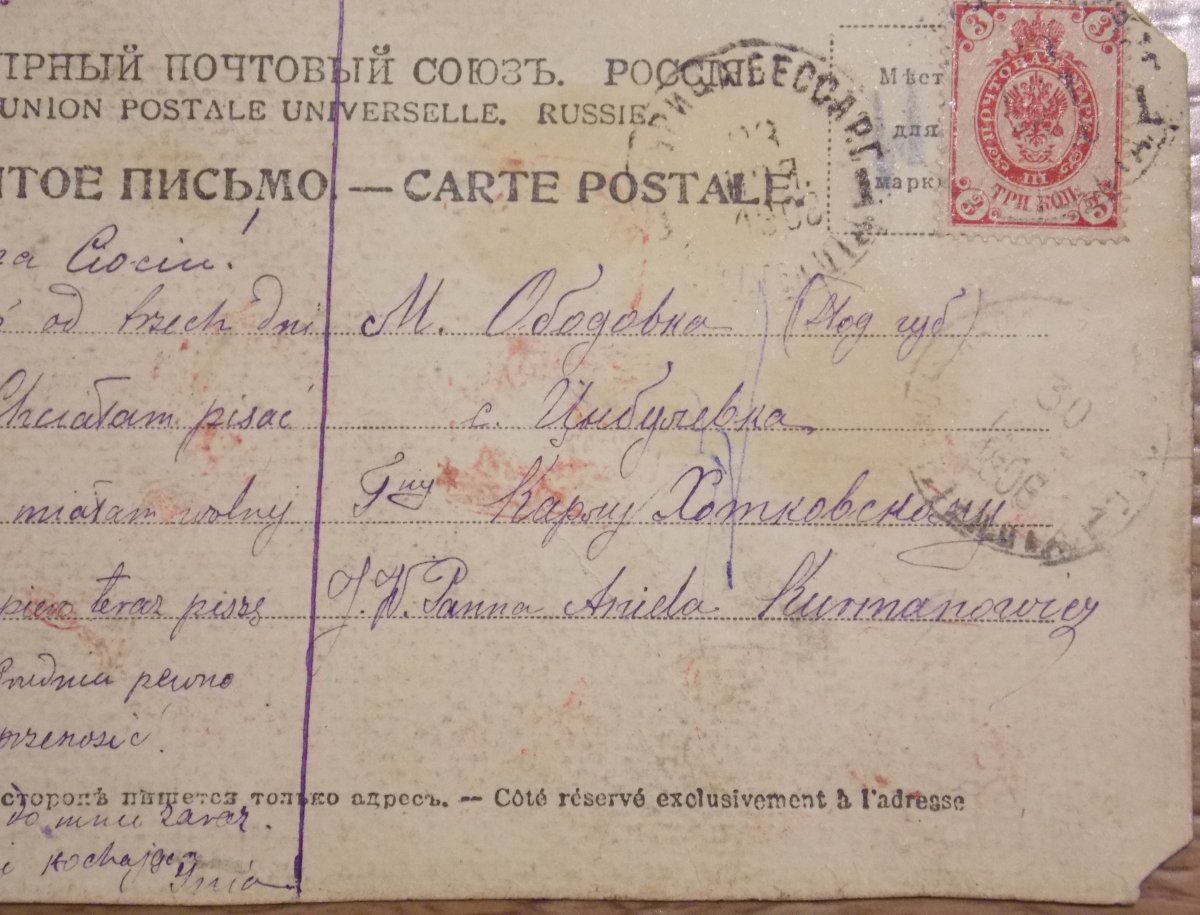 ІРНЫЙ ПОЧТОВЫЙ СОЮЗЪ. РОССІЯ.
UNION POSTALE UNIVERSELLE. RUSSIE.
ТОЕ ПИСЬМО. — CARTE POSTALE.
Мѣст
для
марк
3 3
ПОЧТОВАЯ МАРКА
III
ТРИ КОП.
3 3
БЕССАРАБ.
Ciociu!
od trzech dni
Chciałam pisać
miałam wolny
teraz piszę
pewno
przenosić.
do mnie zaraz.
i kochającą
М. Ободовка (Под губ)
с. Цибулевка
Гну Карлу Хотковскому
J. W. Panna Aniela Kurmanowicz
30
1908
сторонѣ пишется только адресъ. — Côté réservé exclusivement à l'adresse